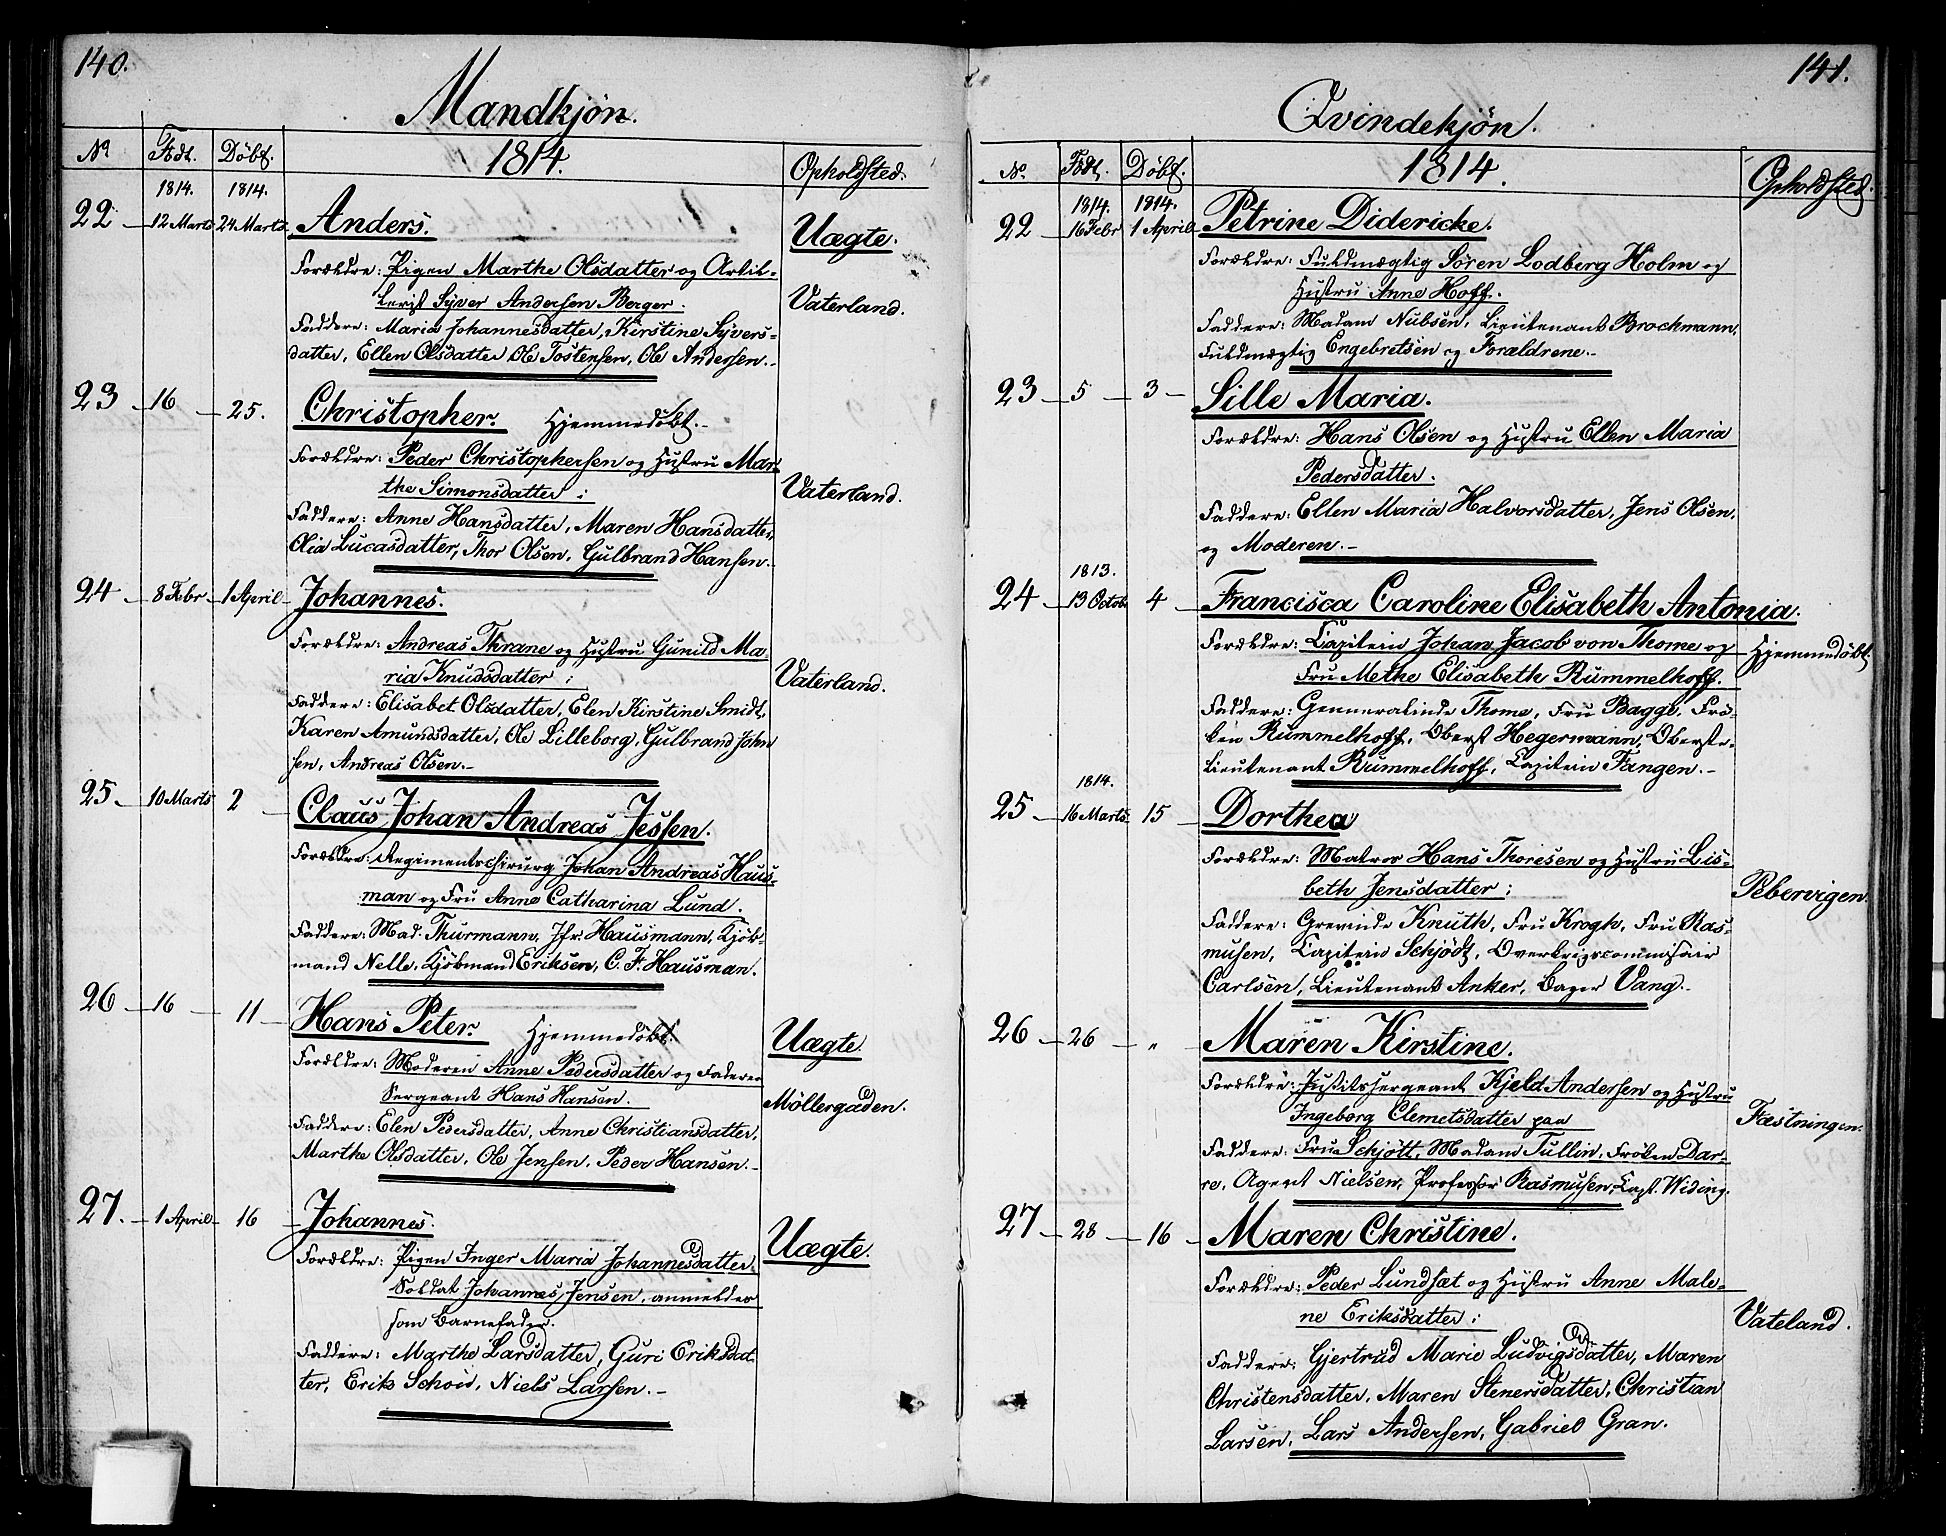 140.
Mandkjøn.
No Født. Døbt. 1814. Opholdsted.
1814. 1814.
22 12 Marts 24 Marts Anders. Uægte.
Forældre: Pigen Marthe Olsdatter og Artil-
lerist Syver Andersen Berger. Vaterland.
Faddere: Maria Johannesdatter, Kirstine Syvers-
datter, Ellen Olsdatter Ole Tostensen, Ole Andersen.
23 16 25. Christopher. Hjemmedøbt.
Forældre: Peder Christophersen og Hustru Mar-
the Simonsdatter: Vaterland.
Faddere: Anne Hansdatter, Maren Hansdatter,
Olia Lucasdatter, Thor Olsen, Gulbrand Hansen.
24 8 Febr 1 April Johannes.
Forældre: Andreas Thrane og Hustru Gunild Ma-
ria Knudsdatter: Vaterland.
Faddere: Elisabet Olsdatter, Elen Kirstine Smidt,
Karen Amundsdatter, Ole Lilleborg, Gulbrand John
sen, Andreas Olsen.
25 10 Marts 2 Claus Johan Andreas Jessen.
Forældre: Regimentschirurg Johan Andreas Haus-
man og Fru Anne Catharina Lund.
Faddere: Mad. Thurmann, Jfr. Hausmann, Kjøb-
mand Nelle, Kjøbmand Eriksen, C. F. Hausman.
26 16 11 Hans Peter. Hjemmedøbt. Uægte.
Forældre: Moderen Anne Pedersdatter og Faderen
Sergeant Hans Hansen. Möllergaden.
Faddere: Elen Pedersdatter, Anne Christiansdatter,
Marthe Olsdatter, Ole Jensen, Peder Hansen.
27. 1 April 16 Johannes. Uægte.
Forældre: Pigen Inger Maria Johannesdatter,
Soldat Johannes Jensen, anmeldes
som Barnefader.
Faddere: Marthe Larsdatter, Guri Eriksdat
ter, Erik Schoid, Niels Larsen.
141.
Qvindekjøn.
No. Født. Døbt. 1814. Opholdsted.
1814. 1814.
22 16 Febr 1 April Petrine Didericke.
Forældre: Fuldmægtig Sören Lodberg Holm og
Hustru Anne Hoff.
Faddere: Madam Nubsen, Lieutenant Brochmann,
Fuldmægtig Engebretsen og Forældrene.
23 5 3 Sille Maria.
Forældre: Hans Olsen og Hustru Ellen Maria
Pedersdatter.
Faddere: Ellen Maria Halvorsdatter, Jens Olsen,
og Moderen.
1813.
24 13 Octob 4 Francisca Caroline Elisabeth Antonia.
Forældre: Capitein Johan Jacob von Thome og Hjemmedøbt.
Fru Methe Elisabeth Rummelhoff.
Faddere: Genneralinde Thome, Fru Bagge, Frø-
ken Rummelhoff, Oberst Hegermann, Oberst-
Lieutenant Rummelhoff, Capitein Fangen.
1814.
25 16 Marts 15 Dorthea
Forældre: Matros Hans Thoresen og Hustru Lis-
beth Jensdatter: Pebervigen
Faddere: Grevinde Knuth, Fru Krogh, Fru Ras-
musen, Capitein Schjödt, Overkrigscommissair
Carlsen, Lieutenant Anker, Bager Vang.
26 26 " Maren Kirstine.
Forældre: Justitssergeant Kjeld Andersen og Hustru
Ingeborg Clemetsdatter paa Fæstningen.
Faddere: Fru Schjött, Madam Tullin, Frøken Dar-
re, Agent Nielsen, Professor Rasmusen, Capt. Widing.
27 28 16 Maren Christine.
Forældre: Peder Lundsæt og Hustru Anne Male-
ne Eriksdatter: Vateland.
Faddere: Gjertrud Marie Ludvigsdatter, Maren
Christensdatter, Maren Stenersdatter, Christian
Larsen, Lars Andersen, Gabriel Gran.